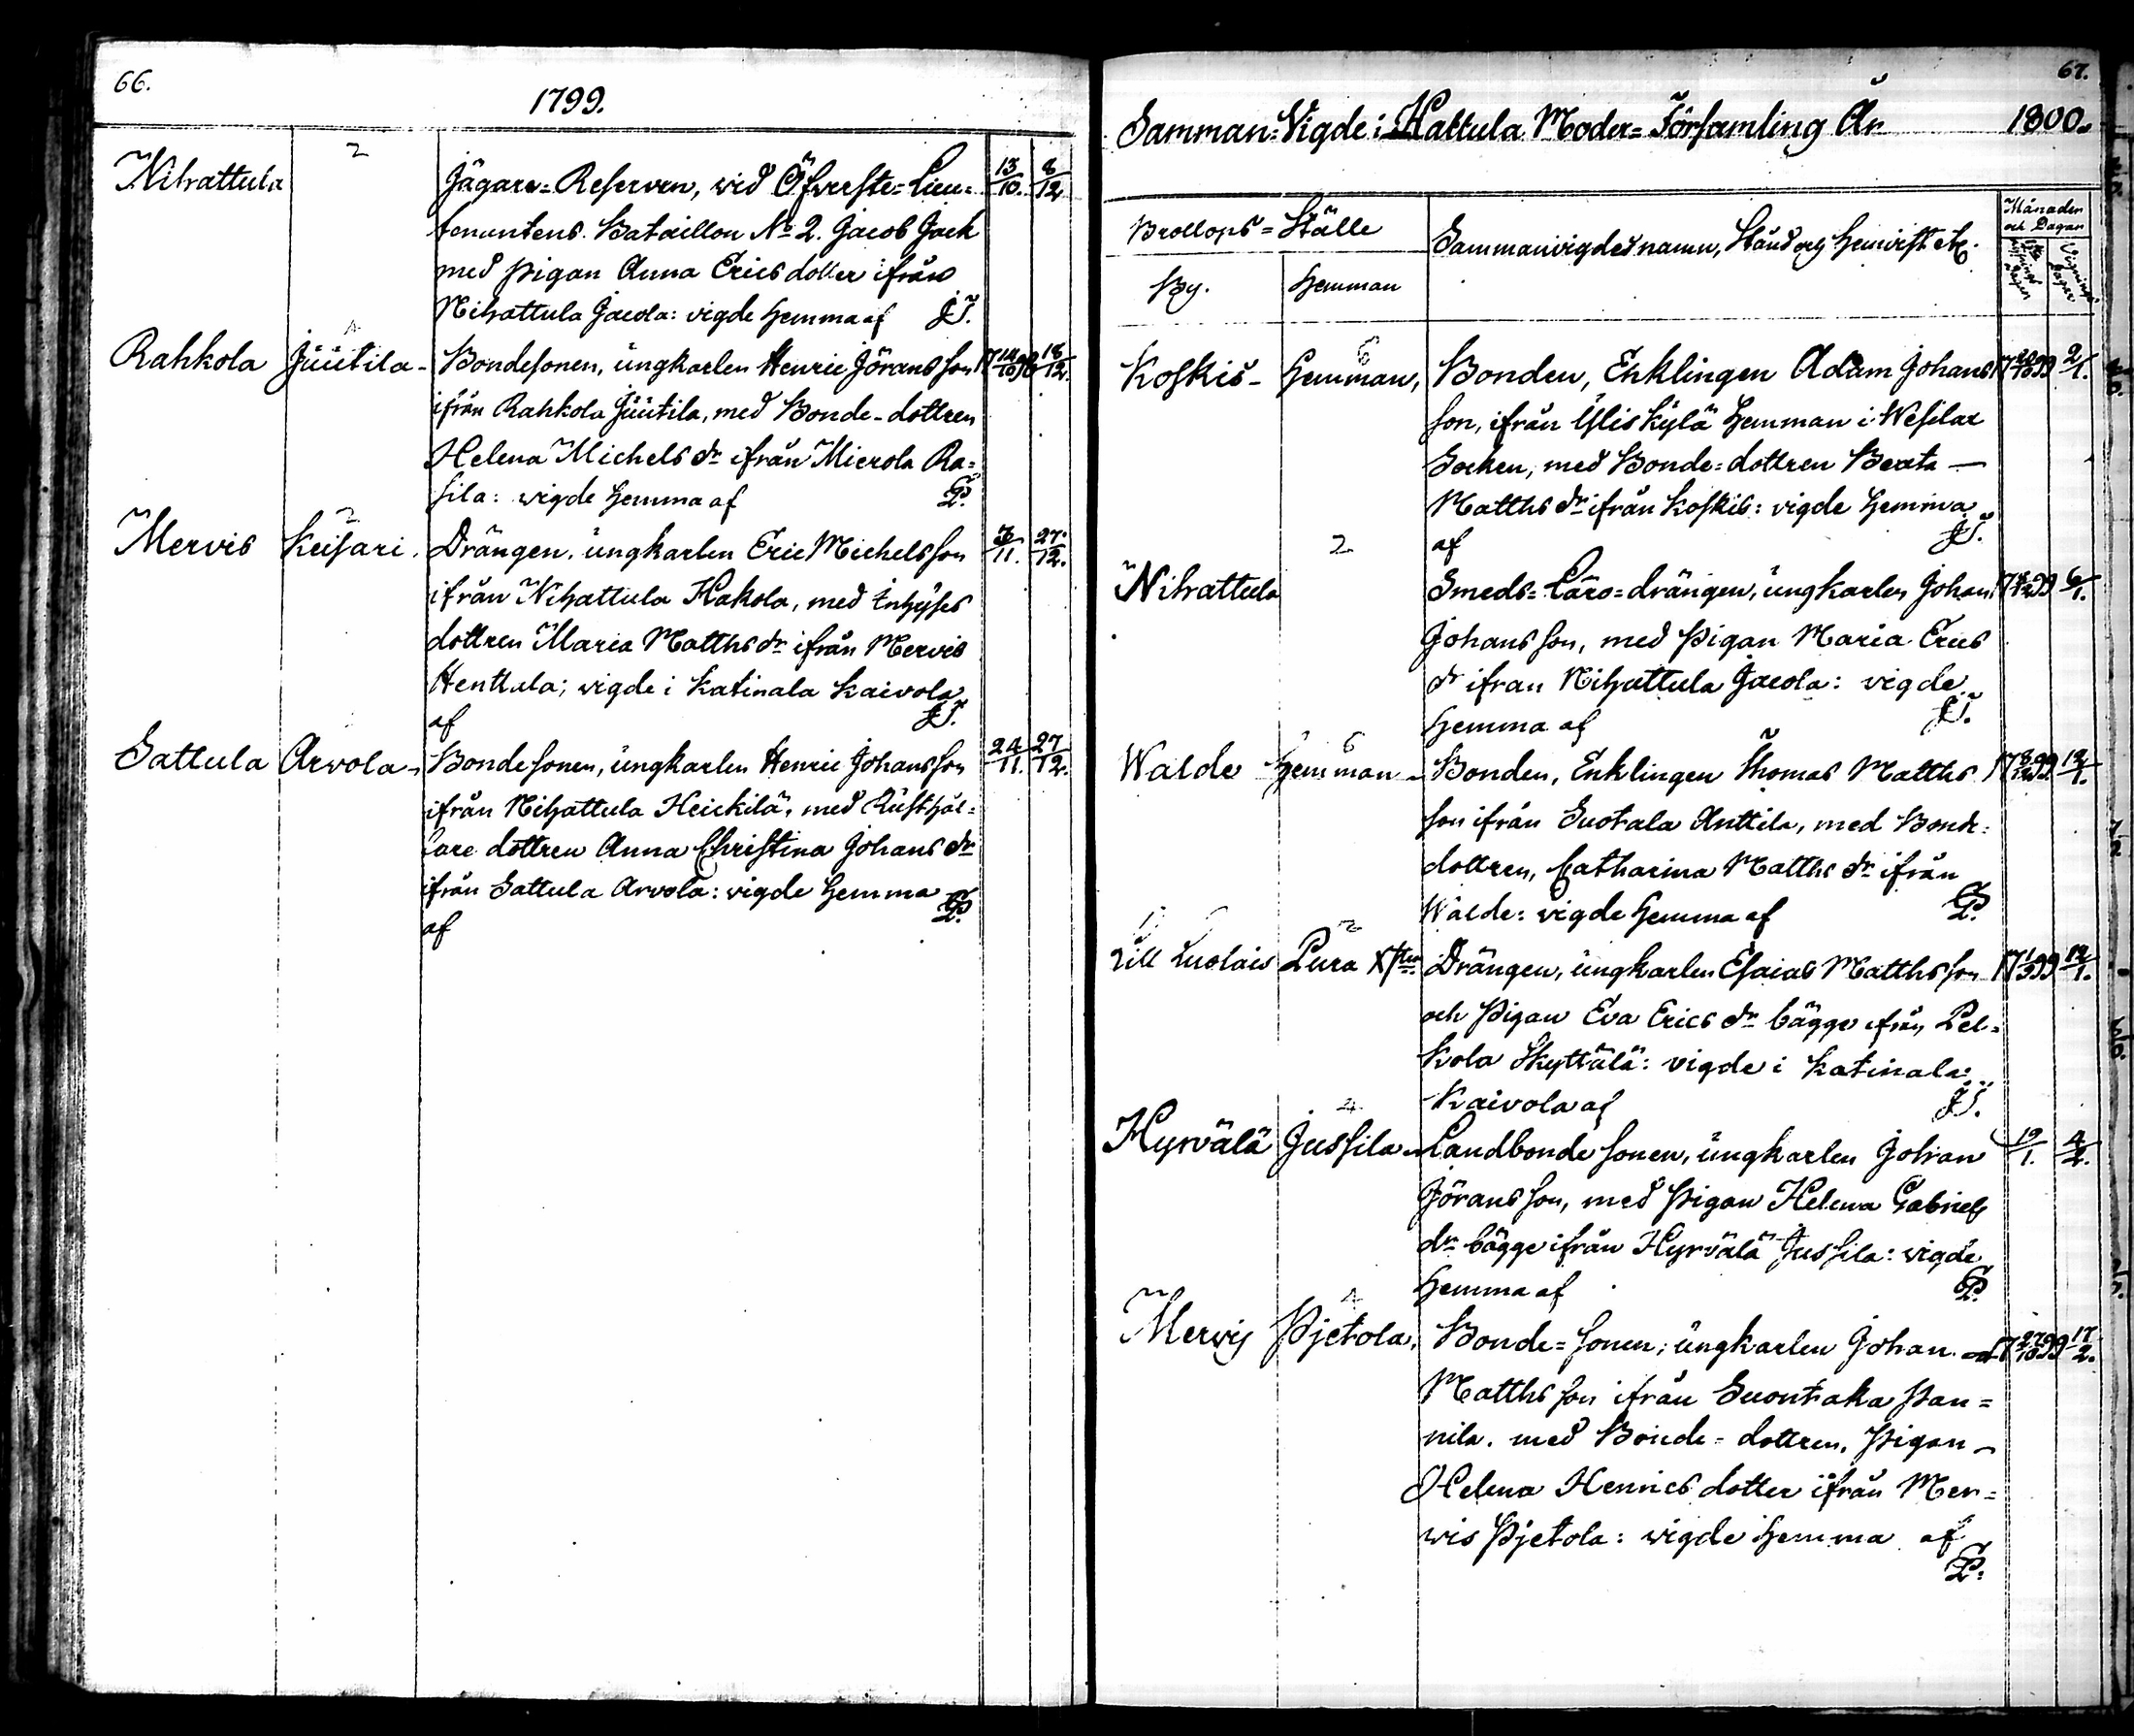 66.
1799.
2
Nihattula
Jägare=Reserven, wid Öfwerste=Lieu=
tenantens Bataillon No 2. Jacob Jack
med Pigan Anna Ericsdotter ifrån
Nihattula Jacola: vigde hemma af JT.
13/10. 8/12
Rahkola Juutila
Bondesonen, ungkarlen Henric Jöransson
ifrån Rahkola Juutila, med Bonde-dottren
Helena Michels dr ifrån Mierola Ra=
sila: wigde hemma af
18/12.
2
Mervis Keisari.
Drängen, ungkarlen Eric Michelsson
ifrån Nihattula Hakola, med Inhyses
dottren Maria Matths dr ifrån Mervis
Henttula; vigde i Katinala Kaivola
af JT.
27/12.
Sattula Arvola
Bondesonen, ungkarlen Henric Johansson
ifrån Nihattula Heickilä, med Rusthål=
lare dottren Anna Christina Johans dr
ifrån Sattula Arvola: vigde hemma
af
24/11. 27/12.
67.
Samman=Vigde i Hattula Moder=Församling År 1800.
Bröllops=Ställe
Sammanvigdes namn, Stånd och hemvist etc.
Månader
och Dagar
By. Hemman
6
Koskis Hemman,
Bonden, Enklingen Adam Johans
son, ifrån Yliskylä hemman i Wesilax
Socken, med Bonde=dottren Beata
Matths dr ifrån Koskis: vigde hemma
af JT.
2/1.
2
Nihattula
Smeds=Läro=drängen, ungkarlen Johan
Johansson, med Pigan Maria Erics
dr ifrån Nihattula Jacola: vigde
hemma af JT.
6/1.
6
Walde Hemman
Bonden, Enklingen Thomas Matths
son ifrån Suotala Anttila, med Bonde=
dottren, Catharina Matths dr ifrån
Walde: vigde hemma af
12/1.
2
Till Luolais Pura
Drängen, ungkarlen Esaias Matthsson
och Pigan Eva Erics dr bägge ifrån Pel=
kola Skyttälä: vigde i Katinala
Kaivola af JT.
12/1.
4
Hyrvälä Jussila
Landbonde sonen, ungkarlen Johan
Jöransson, med Pigan Helena Gabriels
dr bägge ifrån Hyrvälä Jussila: vigde
hemma af
19/1. 4/2.
Mervis Pjetola.
Bonde=sonen, ungkarlen Johan
Matthsson ifrån Suontaka Pan=
nila. med Bonde=dottren, Pigan
Helena Henricsdotter ifrån Mer=
wis Pjetola: wigde hemma af
17/2.